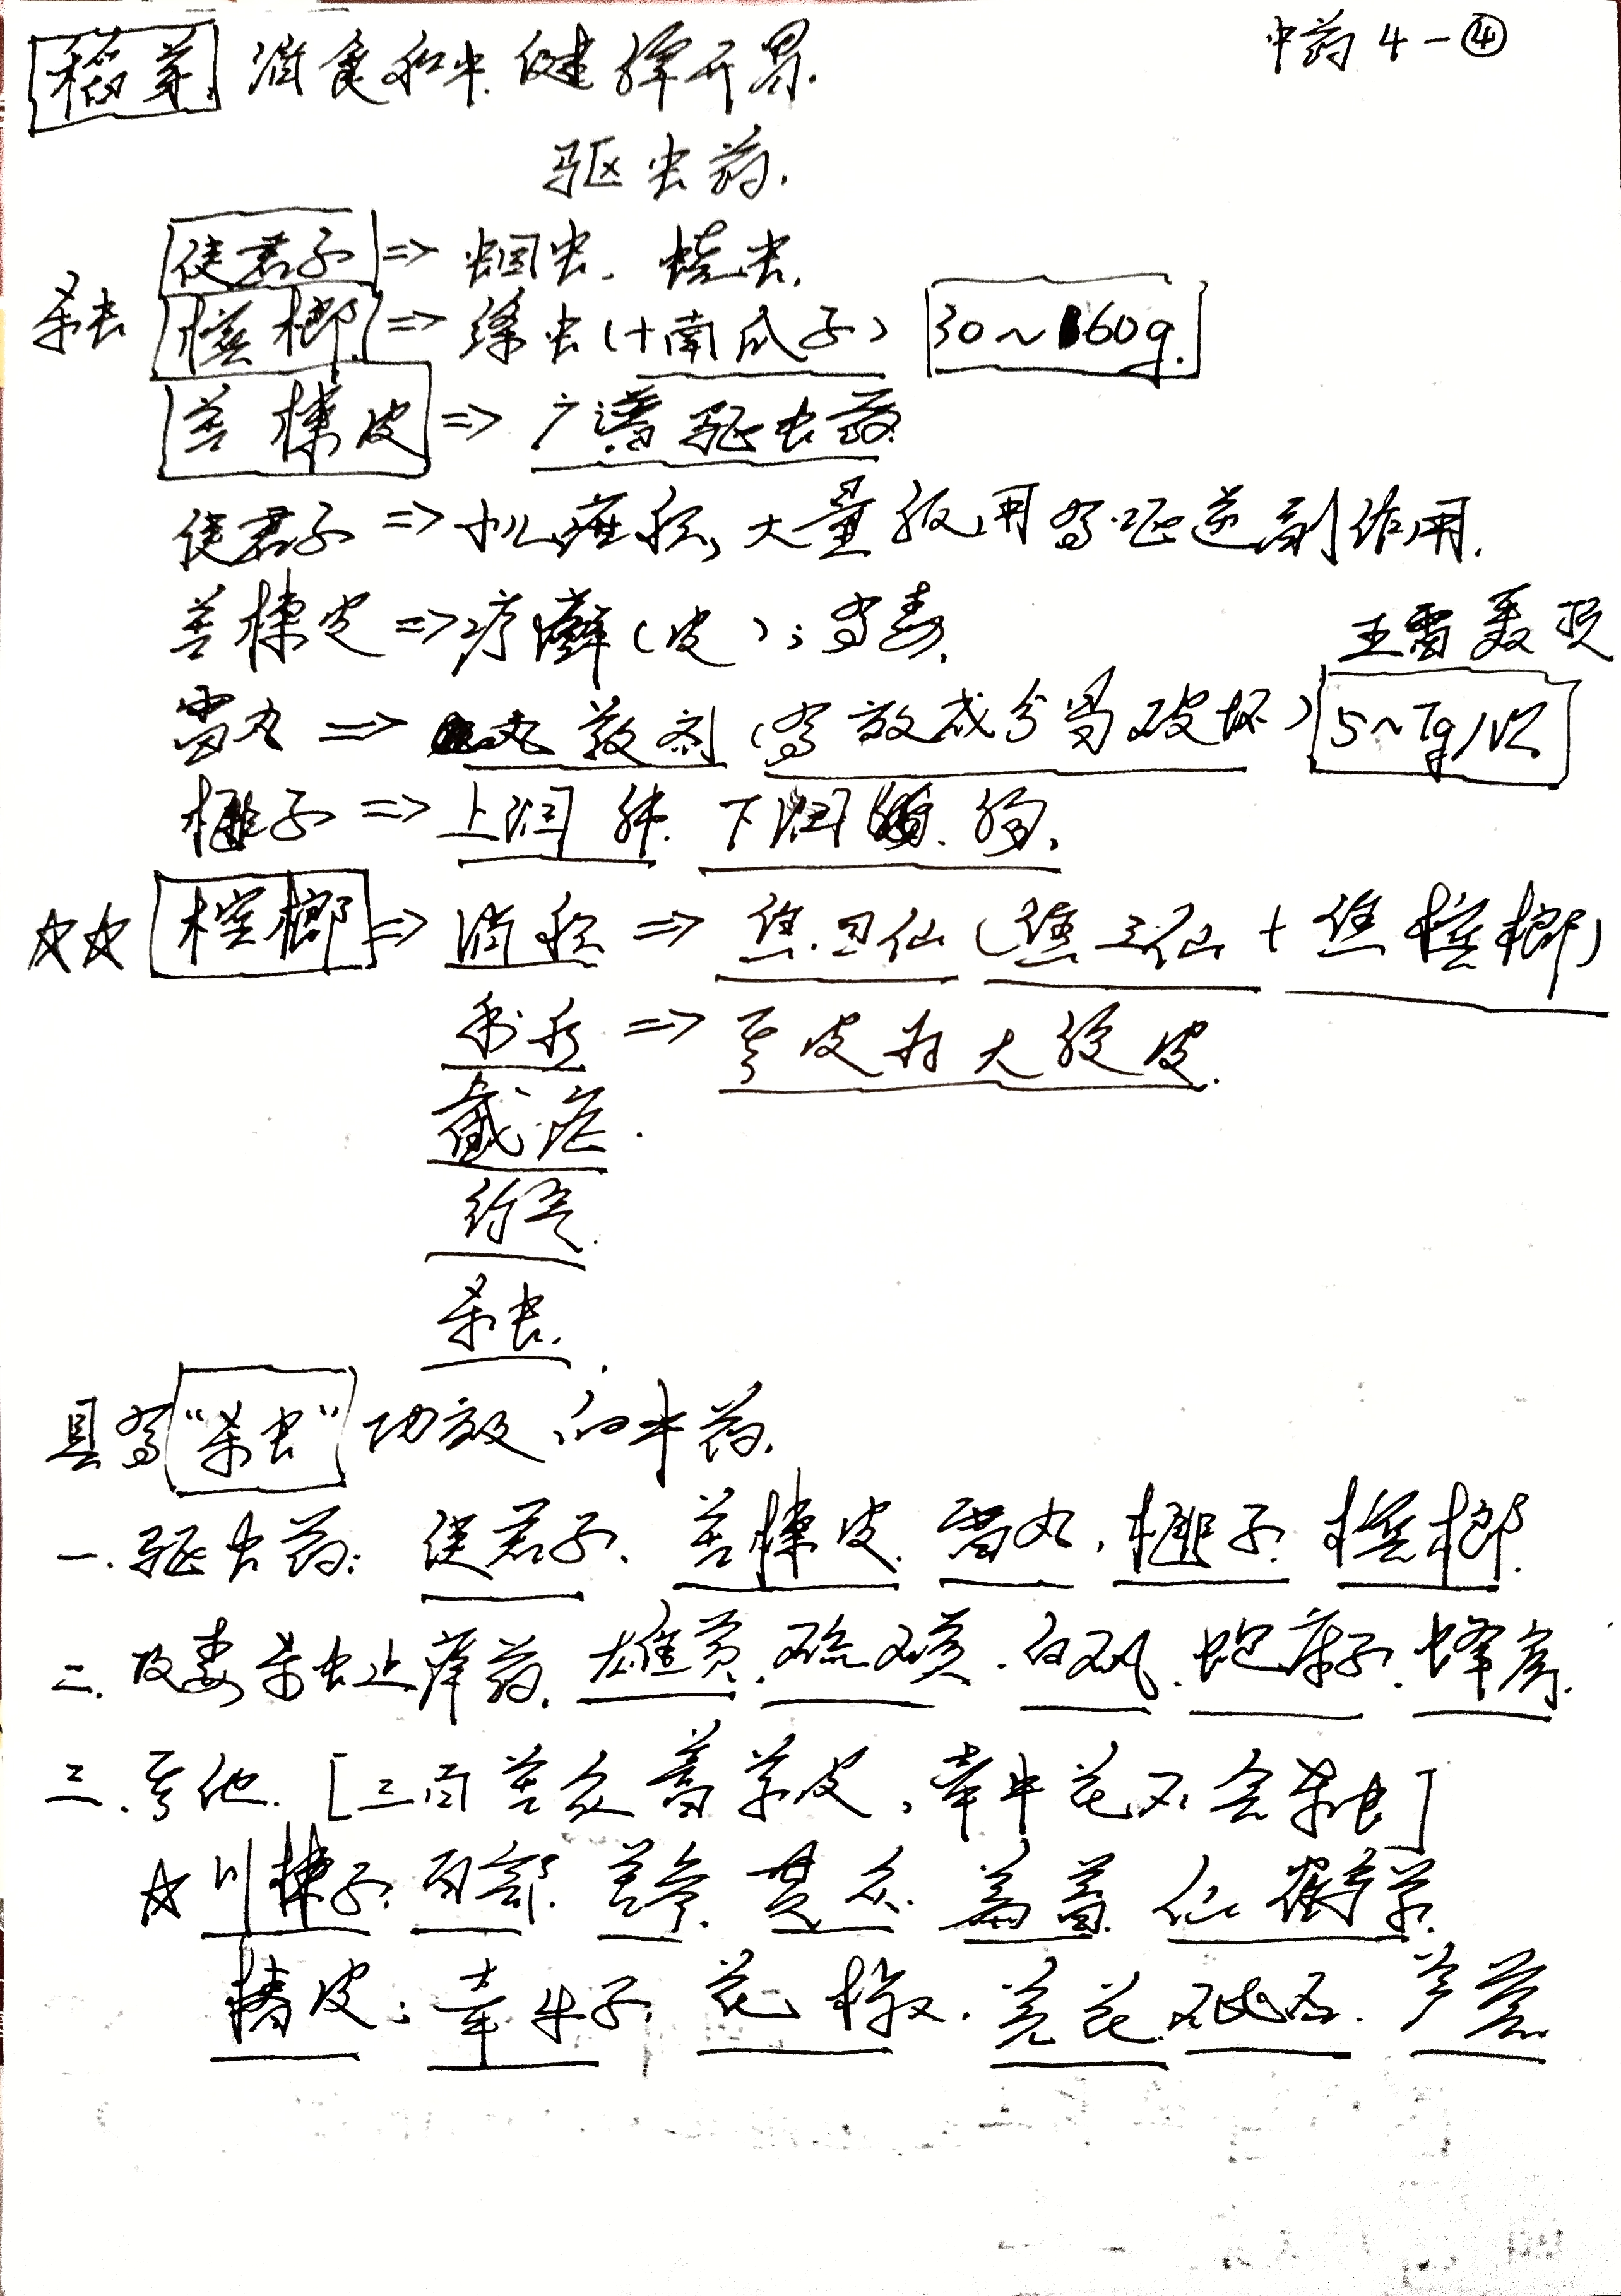 中药4-④
稻芽 消食和中.健脾开胃.
驱虫药.
使君子 => 蛔虫.蛲虫.
杀虫 槟榔 => 绦虫(+南瓜子) 30~60g.
苦楝皮 => 广谱驱虫药
使君子 => 小儿疳积,大量服用有呃逆副作用.
苦楝皮 => 疗癣(皮);有毒.
五雷轰顶
雷丸 => 丸散剂(有效成分易破坏) 5~7g/次
榧子 => 上润肺.下润肠.
☆☆ 槟榔 => 消积 => 焦四仙(焦三仙+焦槟榔)
利水 => 其皮为大腹皮.
截疟.
行气.
杀虫.
具有"杀虫"功效的中药.
一.驱虫药: 使君子、苦楝皮.雷丸.榧子.槟榔.
二.攻毒杀虫止痒药.雄黄.硫磺.白矾.蛇床子.蜂房.
三.其他.[三百苦众蓄草皮,牵牛花不会杀虫]
☆川楝子.百部.苦参.贯众.萹蓄.仙鹤草.
椿皮;牵牛子.花椒.芫花.砒石.芦荟